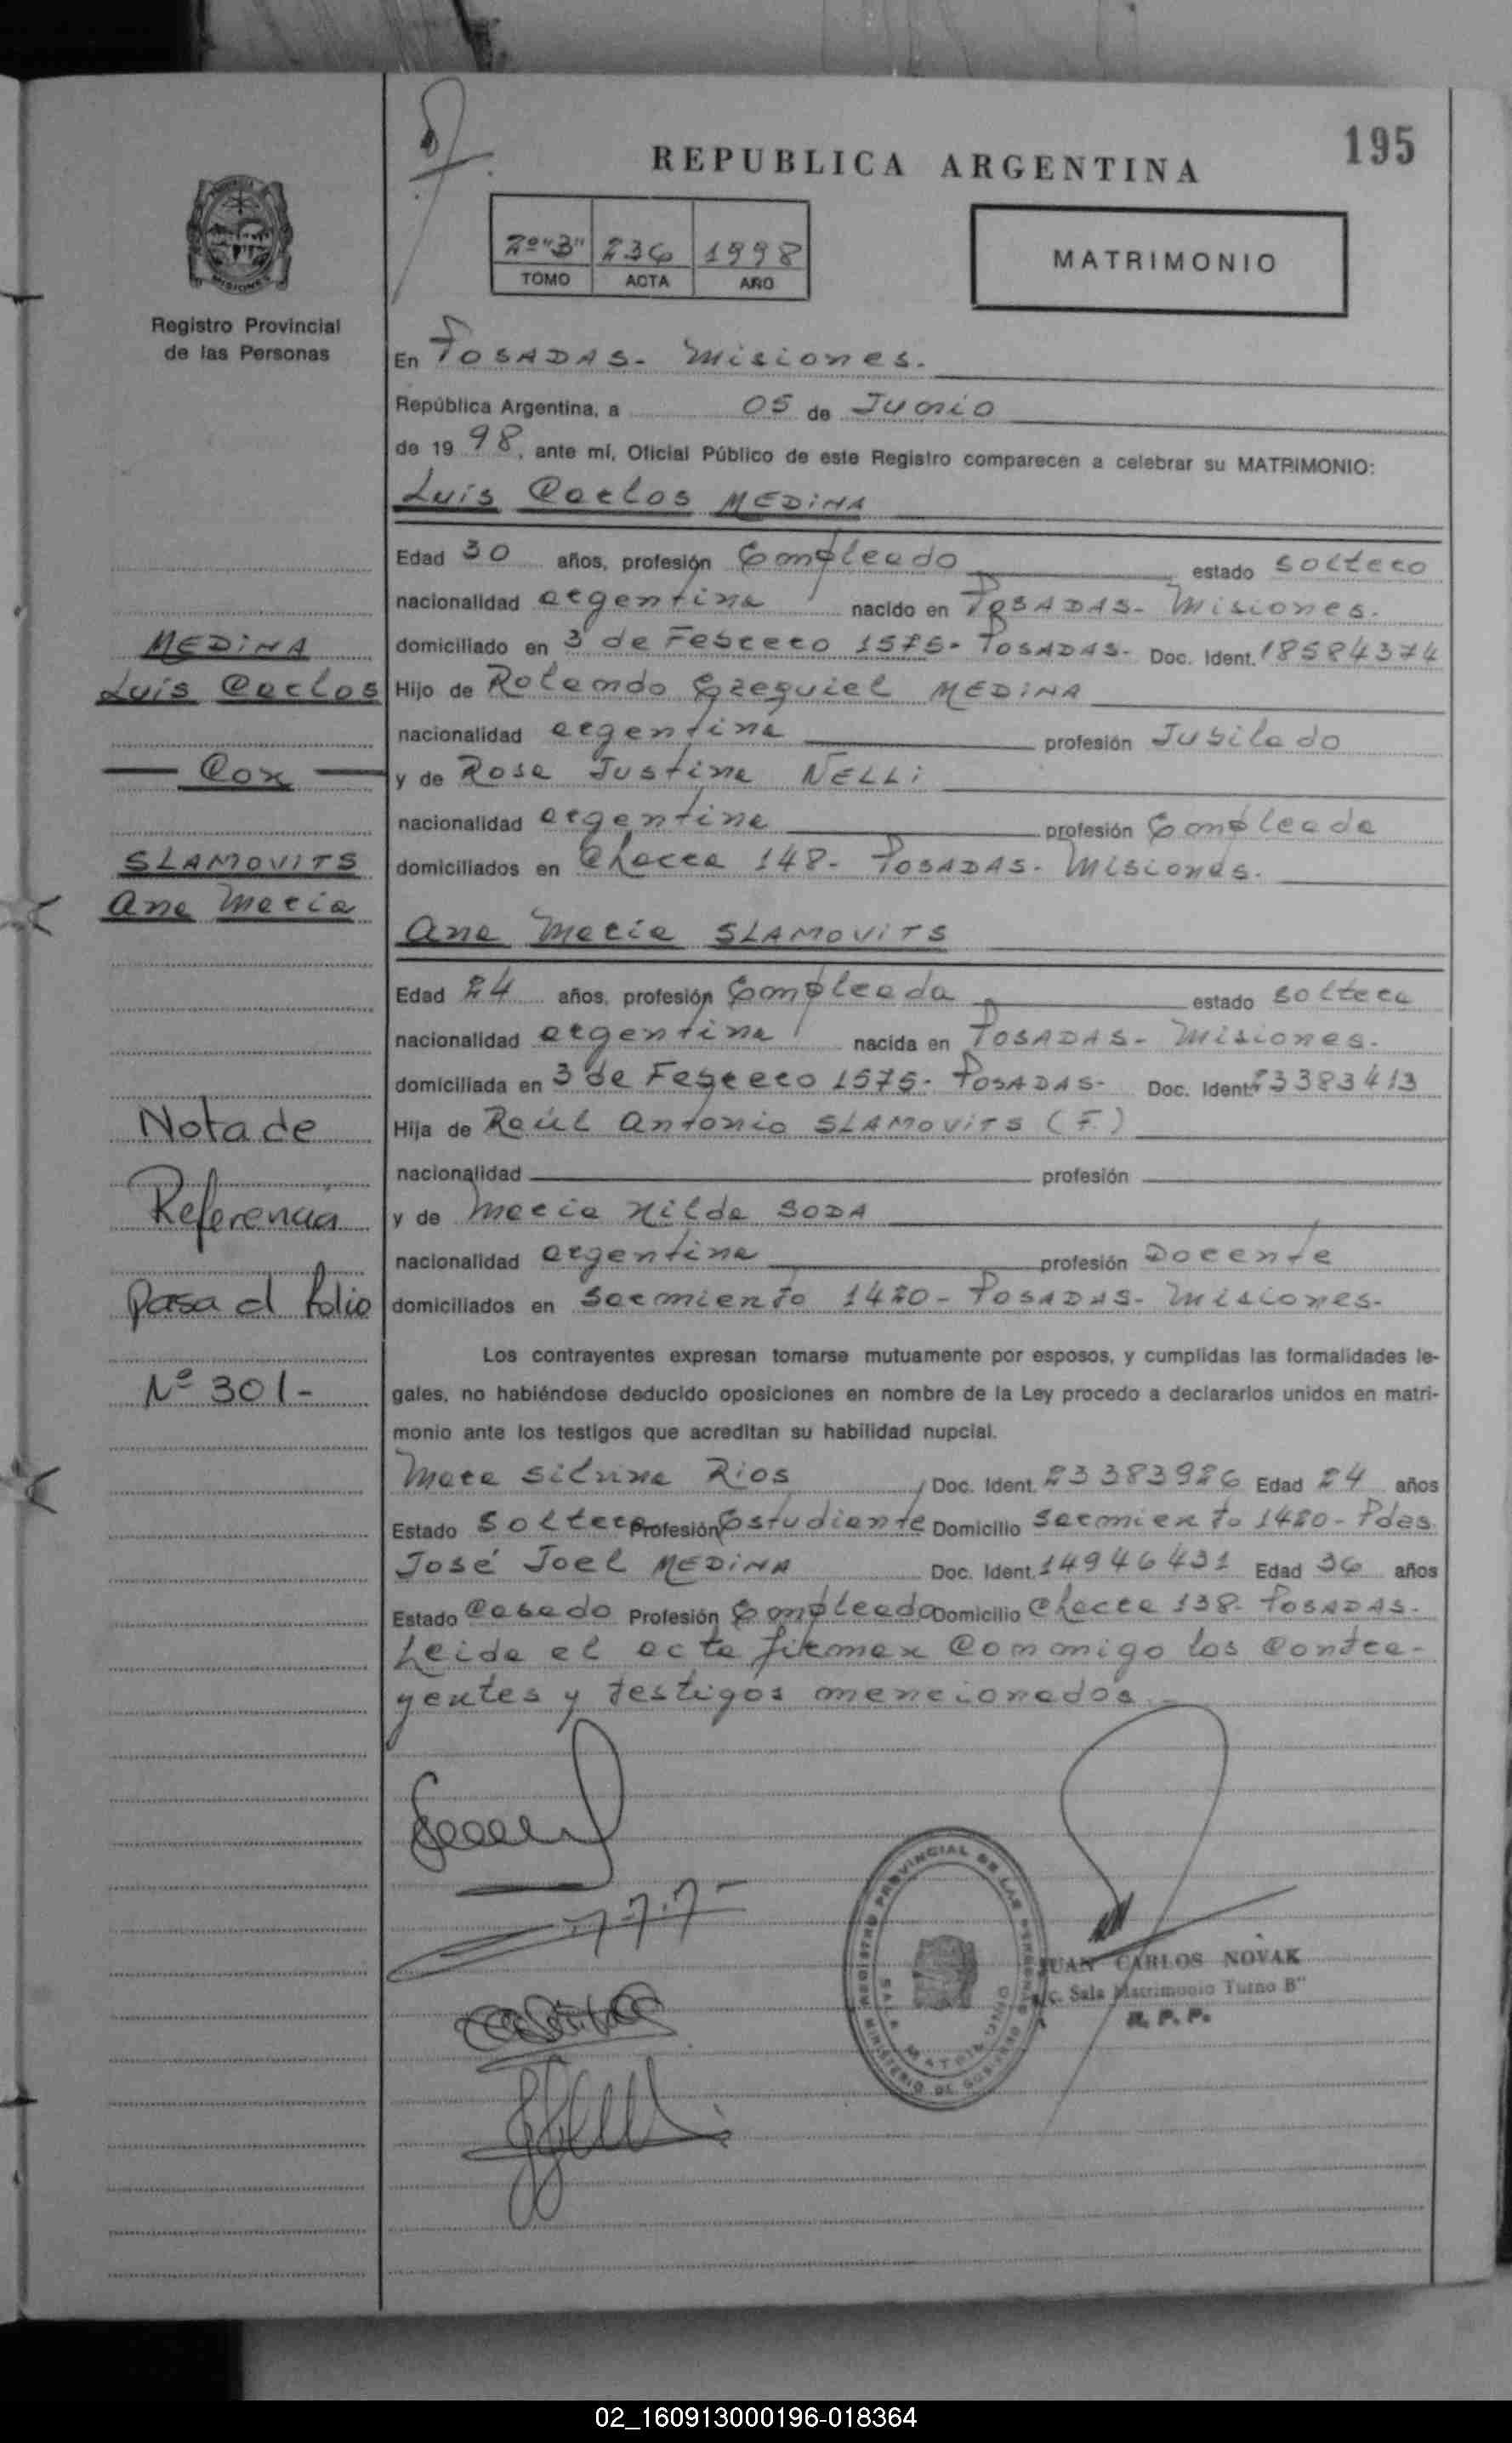 195
REPUBLICA ARGENTINA
2º "B" 236 1998
TOMO ACTA AÑO
MATRIMONIO
MISIONES
Registro Provincial
de las Personas
En POSADAS - Misiones.
República Argentina, a 05 de Junio
de 1998, ante mí, Oficial Público de este Registro comparecen a celebrar su MATRIMONIO:
Luis Carlos MEDINA
Edad 30 años, profesión Empleado estado soltero
nacionalidad argentina nacido en POSADAS - Misiones.
domiciliado en 3 de Febrero 1575 - POSADAS - Doc. Ident. 18584374
Hijo de Rolando Ezequiel MEDINA
nacionalidad argentina profesión Jubilado
y de Rosa Justina NELLI
nacionalidad argentina profesión Empleada
domiciliados en Chacra 148 - POSADAS - Misiones.
Ana María SLAMOVITS
Edad 24 años, profesión Empleada estado soltera
nacionalidad argentina nacida en POSADAS - Misiones.
domiciliada en 3 de Febrero 1575 - POSADAS - Doc. Ident. 23383413
Hija de Raúl Antonio SLAMOVITS (F.)
nacionalidad profesión
y de María Hilda SODA
nacionalidad argentina profesión Docente
domiciliados en Sarmiento 1480 - POSADAS - Misiones.
Los contrayentes expresan tomarse mutuamente por esposos, y cumplidas las formalidades le-
gales, no habiéndose deducido oposiciones en nombre de la Ley procedo a declararlos unidos en matri-
monio ante los testigos que acreditan su habilidad nupcial.
Mara Silvina Rios Doc. Ident. 23383926 Edad 24 años
Estado Soltera Profesión Estudiante Domicilio Sarmiento 1480 - Pdas.
José Joel MEDINA Doc. Ident. 14946431 Edad 36 años
Estado Casado Profesión Empleado Domicilio Chacra 138 - POSADAS -
Leida el acta firman conmigo los contra-
yentes y testigos mencionados.
MEDINA
Luis Carlos
Con
SLAMOVITS
Ana María
Nota de
Referencia
Pasa al folio
Nº 301-
REGISTRO PROVINCIAL DE LAS PERSONAS
SALA MATRIMONIO
MINISTERIO DE GOBIERNO
JUAN CARLOS NOVAK
Sala Matrimonio Turno B"
R. P. P.
02_160913000196-018364